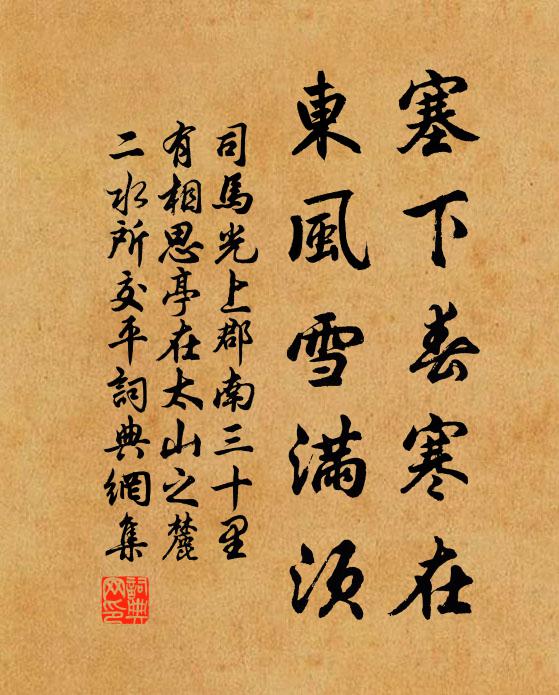 塞下春寒在
東風雪滿須
司馬光上郡南三十里
有相思亭在太山之麓
二水所交平詞典網集
詞典網印